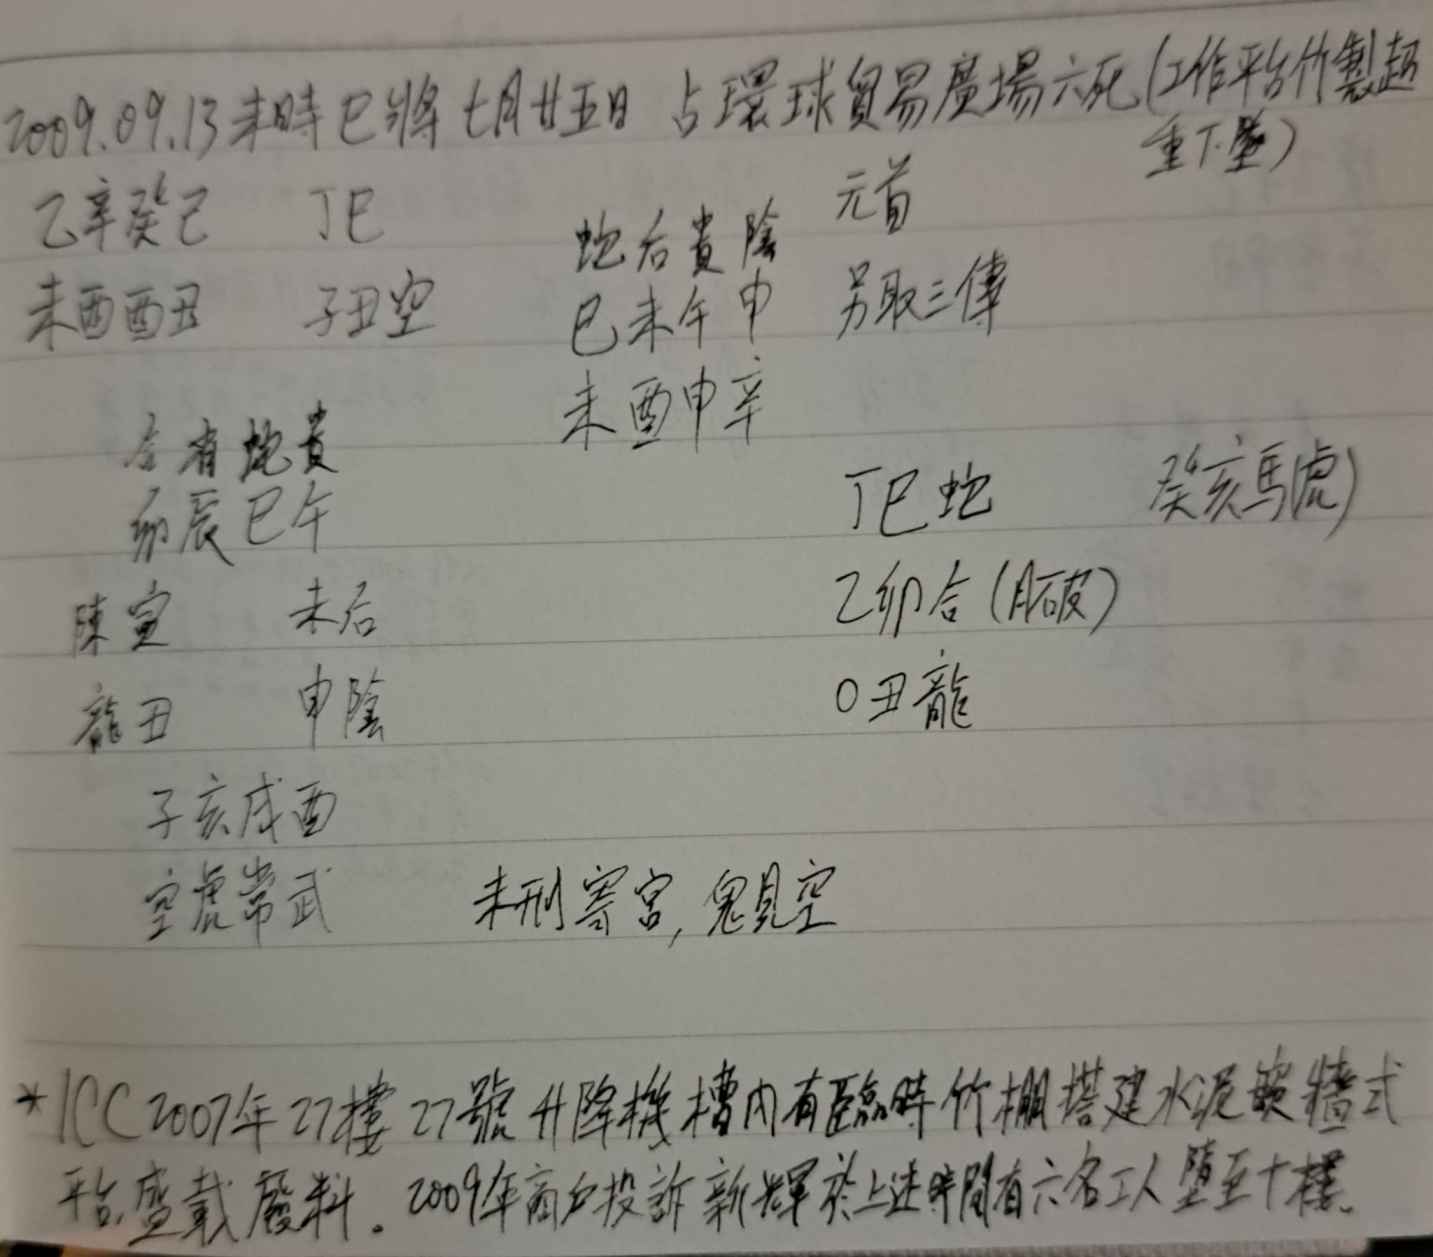 2009.09.13 未時巳將 七月廿五日 占環球貿易廣場六死(工作平台竹製超
重下墜)
乙辛癸己 丁巳
未酉酉丑 子丑空
蛇后貴陰
巳未午申
未酉申辛
元首
另取三傳
合 蛇貴
卯辰巳午
陳寅 未后
龍丑 申陰
子亥戌酉
空虎常武
丁巳蛇 癸亥馬(虎)
乙卯合(月破)
0丑龍
未刑寄宮,鬼見空
*ICC 2007年27樓27號升降機槽內有臨時竹棚搭建水泥 牆式
平台盛載廢料。2009年商戶投訴 新輝於上述時間有六名工人墮至十樓。